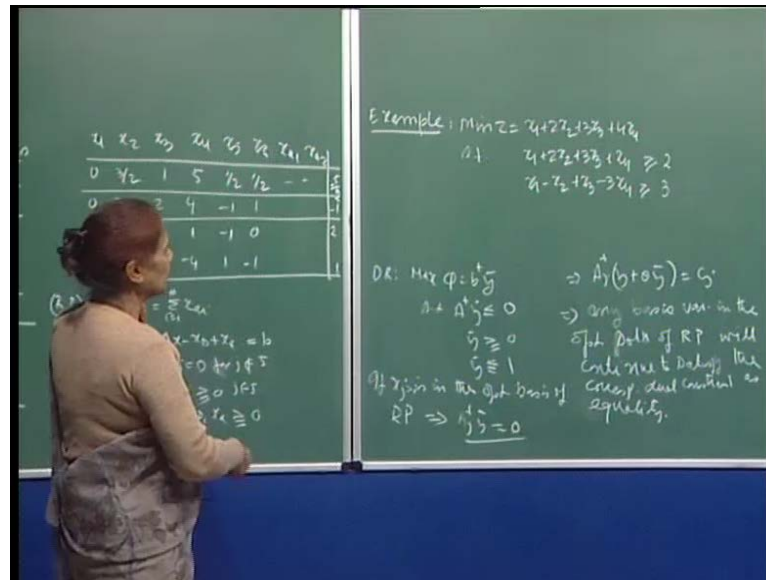 x₁ x₂ x₃ x₄ x₅ x₆ xₐ₁ xₐ₂
0 3/2 1 5 1/2 1/2 - -
0 2 4 -1 1 -1
1 -1 0 2
-4 1 -1 1
Example: Min Z = x₁+2x₂+3x₃+4x₄
s.t. x₁+2x₂+3x₃+x₄ ≥ 2
x₁-x₂+x₃-3x₄ ≥ 3
DR: Max φ = bᵗȳ
s.t. Aᵗȳ ≤ 0
ȳ ≥ 0
ȳ ≤ 1
If xⱼ is in the opt basis of
RP ⇒ Aⱼᵗȳ = 0
⇒ Aⱼᵗ(y+θȳ) = cⱼ
⇒ any basis var. in the
opt soln of RP will
continue to satisfy the
corresp. dual constraint as
equality.